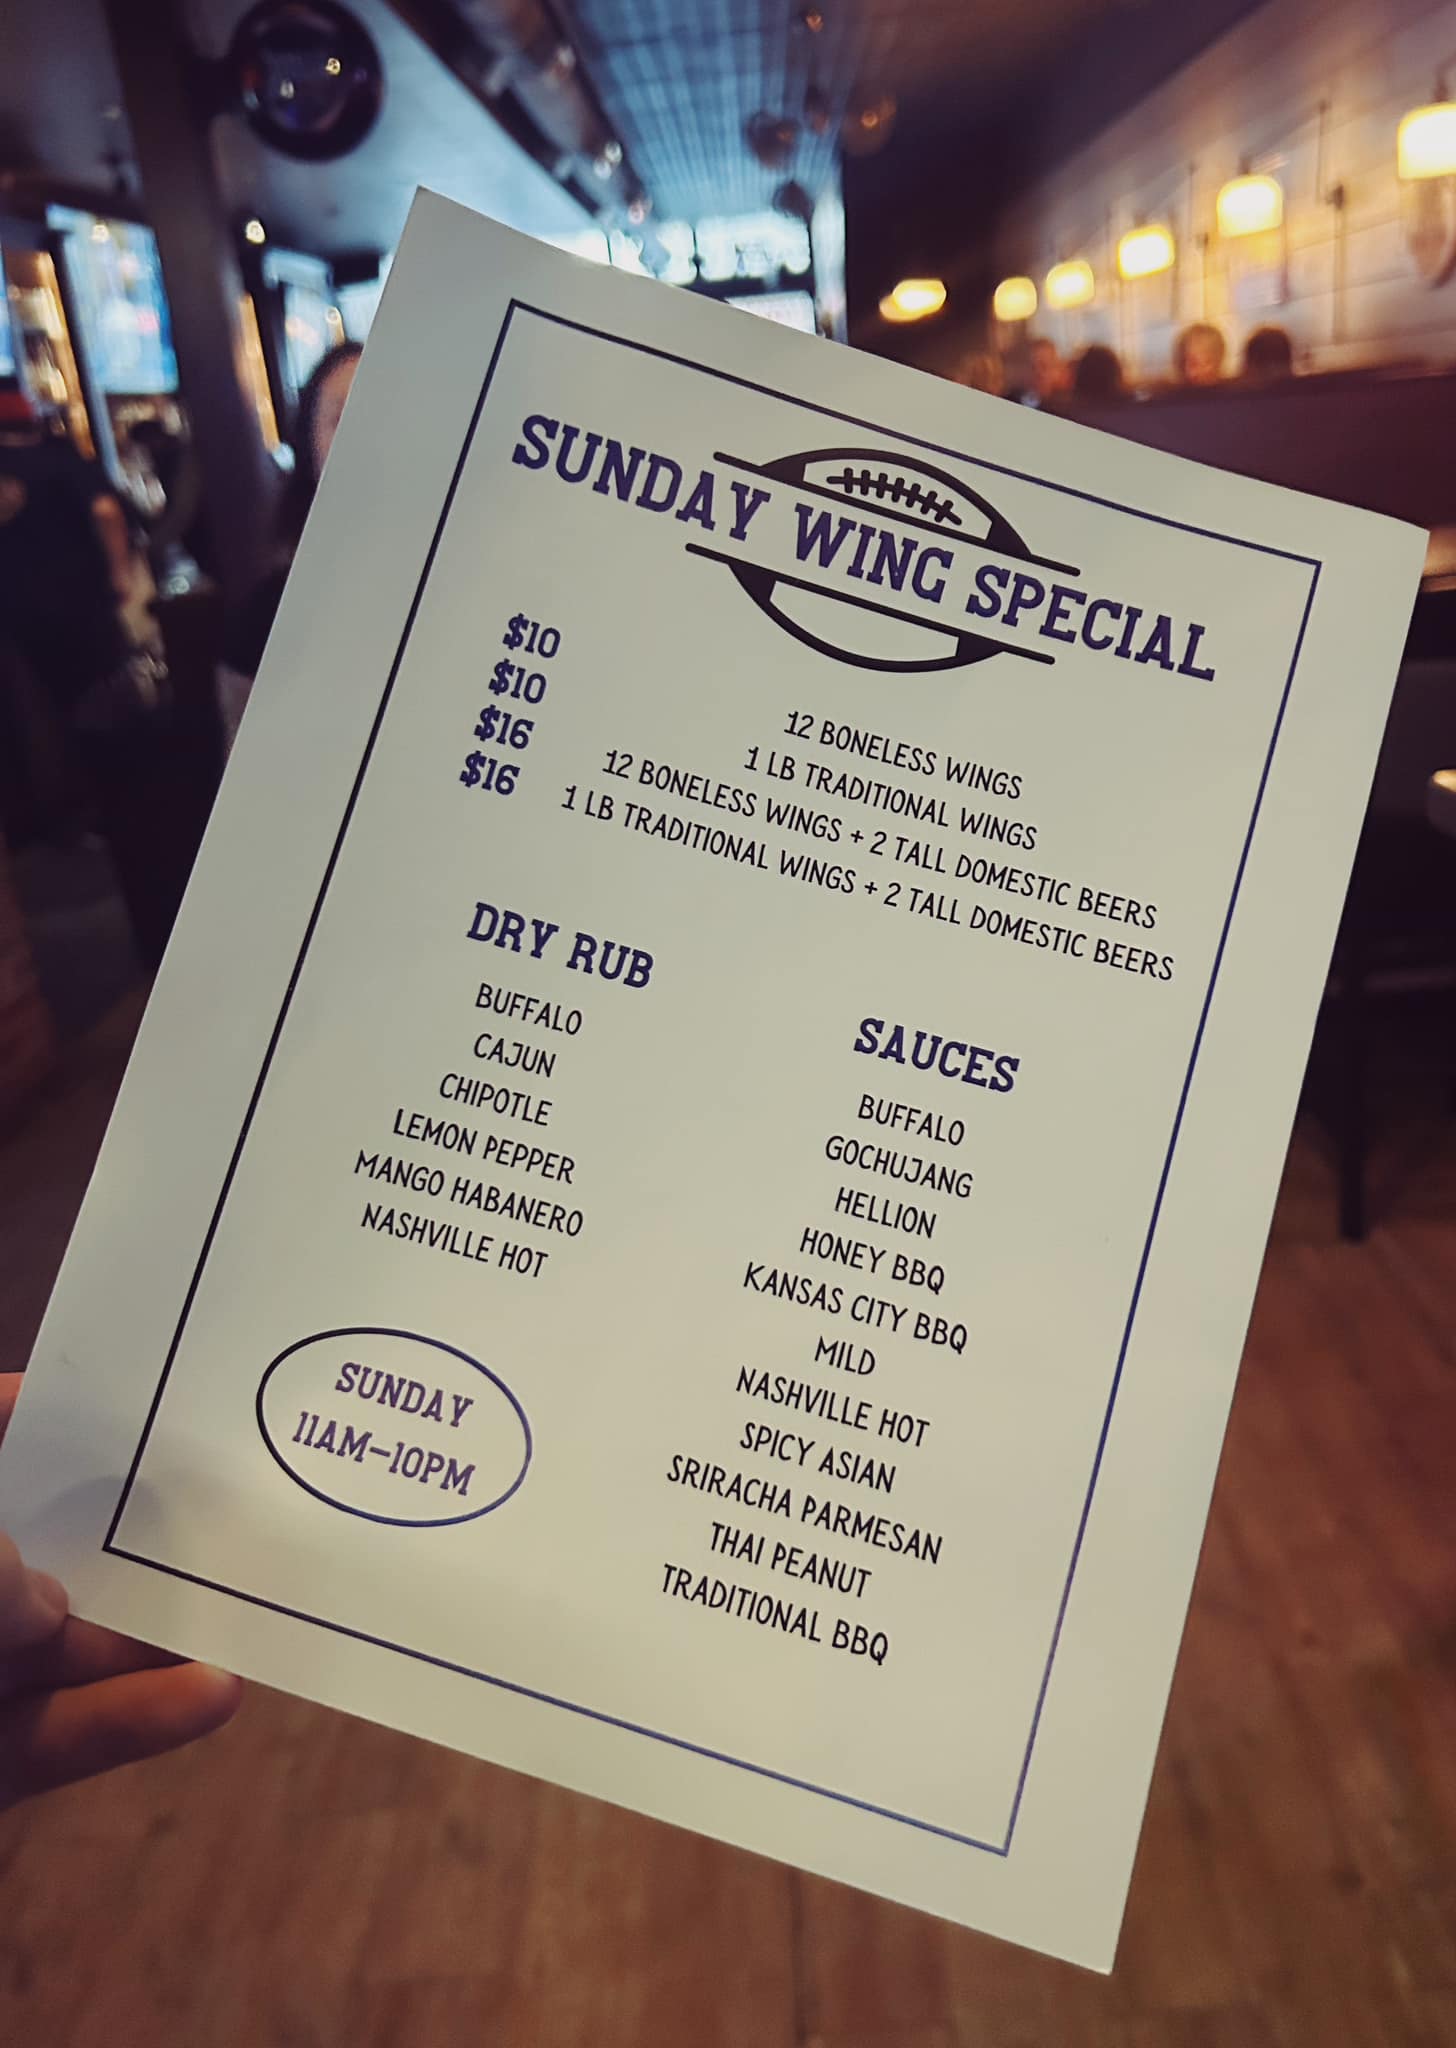 SUNDAY WING SPECIAL
$10 12 BONELESS WINGS
$10 1 LB TRADITIONAL WINGS
$16 12 BONELESS WINGS + 2 TALL DOMESTIC BEERS
$16 1 LB TRADITIONAL WINGS + 2 TALL DOMESTIC BEERS
DRY RUB
BUFFALO
CAJUN
CHIPOTLE
LEMON PEPPER
MANGO HABANERO
NASHVILLE HOT
SUNDAY
11AM-10PM
SAUCES
BUFFALO
GOCHUJANG
HELLION
HONEY BBQ
KANSAS CITY BBQ
MILD
NASHVILLE HOT
SPICY ASIAN
SRIRACHA PARMESAN
THAI PEANUT
TRADITIONAL BBQ